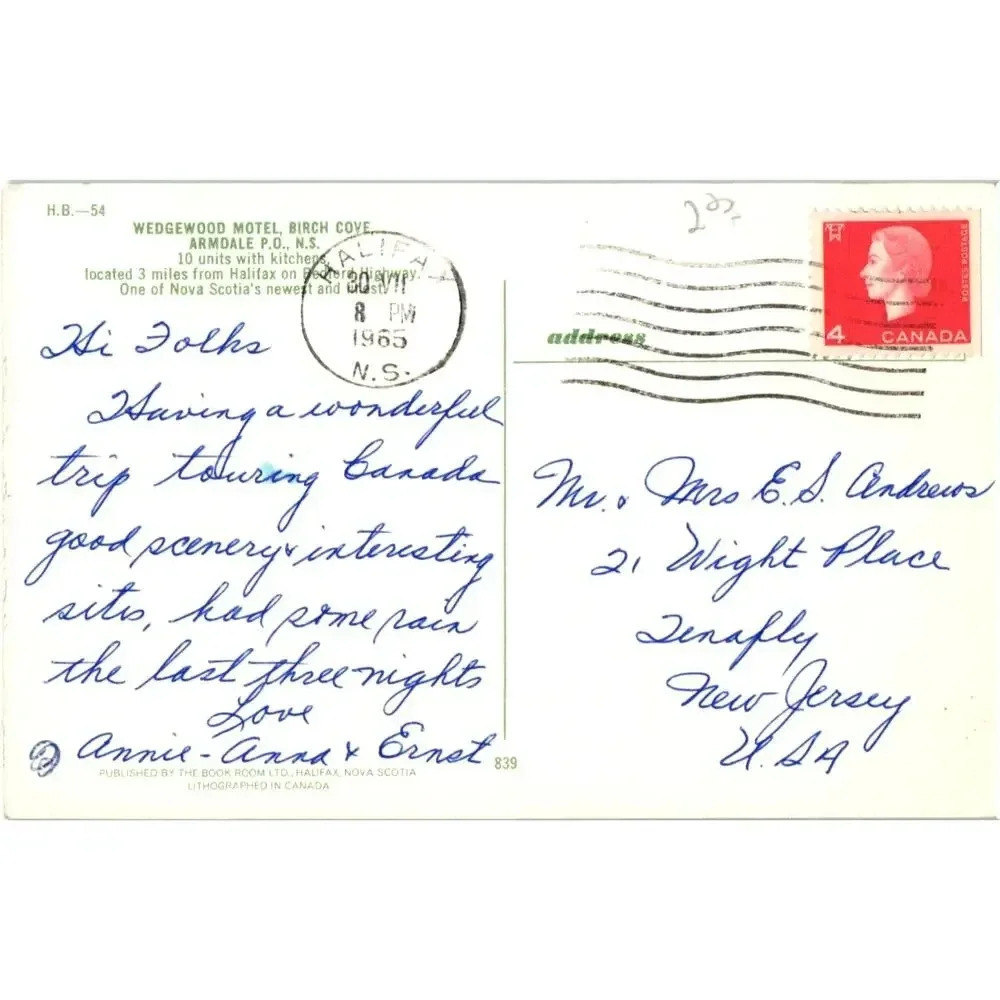 H.B.—54
WEDGEWOOD MOTEL, BIRCH COVE,
ARMDALE P.O., N.S.
10 units with kitchens
located 3 miles from Halifax on Bedford Highway.
One of Nova Scotia's newest and finest.
HALIFAX
VII
8 PM
1965
N.S.
address
POSTES POSTAGE
4 CANADA
Hi Folks
Having a wonderful
trip touring Canada
good scenery & interesting
sites, had some rain
the last three nights
Love
Annie - Anna & Ernst
PUBLISHED BY THE BOOK ROOM LTD., HALIFAX, NOVA SCOTIA
LITHOGRAPHED IN CANADA
839
Mr. & Mrs E. S. Andrews
21 Wight Place
Tenafly
New Jersey
U.SA